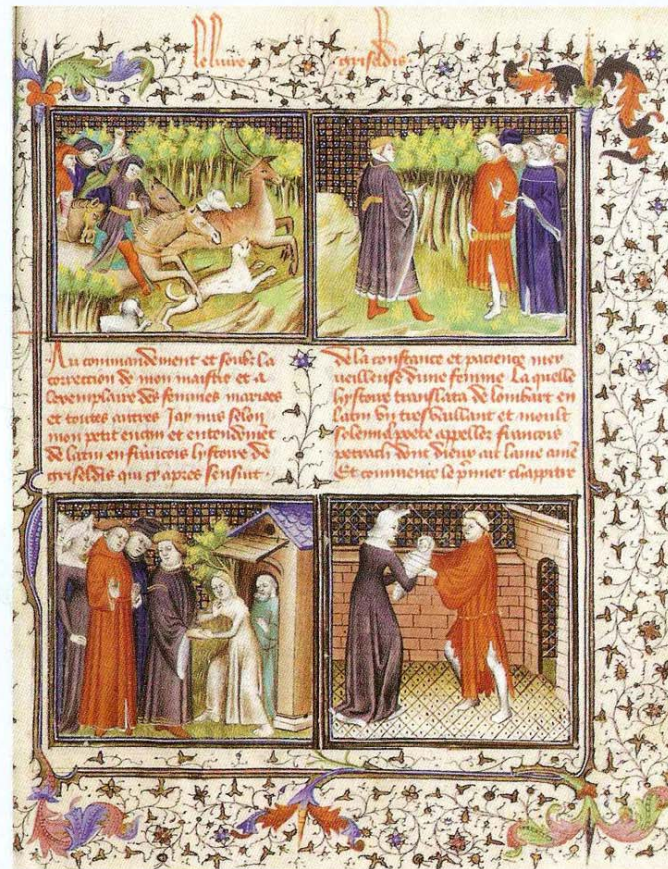 le livre griseldis
Au commandement et soubz la
correction de mon maistre et a
lexemplaire des femmes mariees
et toutes autres Jay mis selon
mon petit engin et entendemet
de latin en francois lystoire de
griseldis qui cy apres sensuit
de la constance et patience mer
ueilleuse dune femme La quelle
hystoire translata de lombart en
latin vn tresvaillant et moult
solennel poete appellez francois
petrach dont dieux ait lame ame
Et commence le pmier chappitre